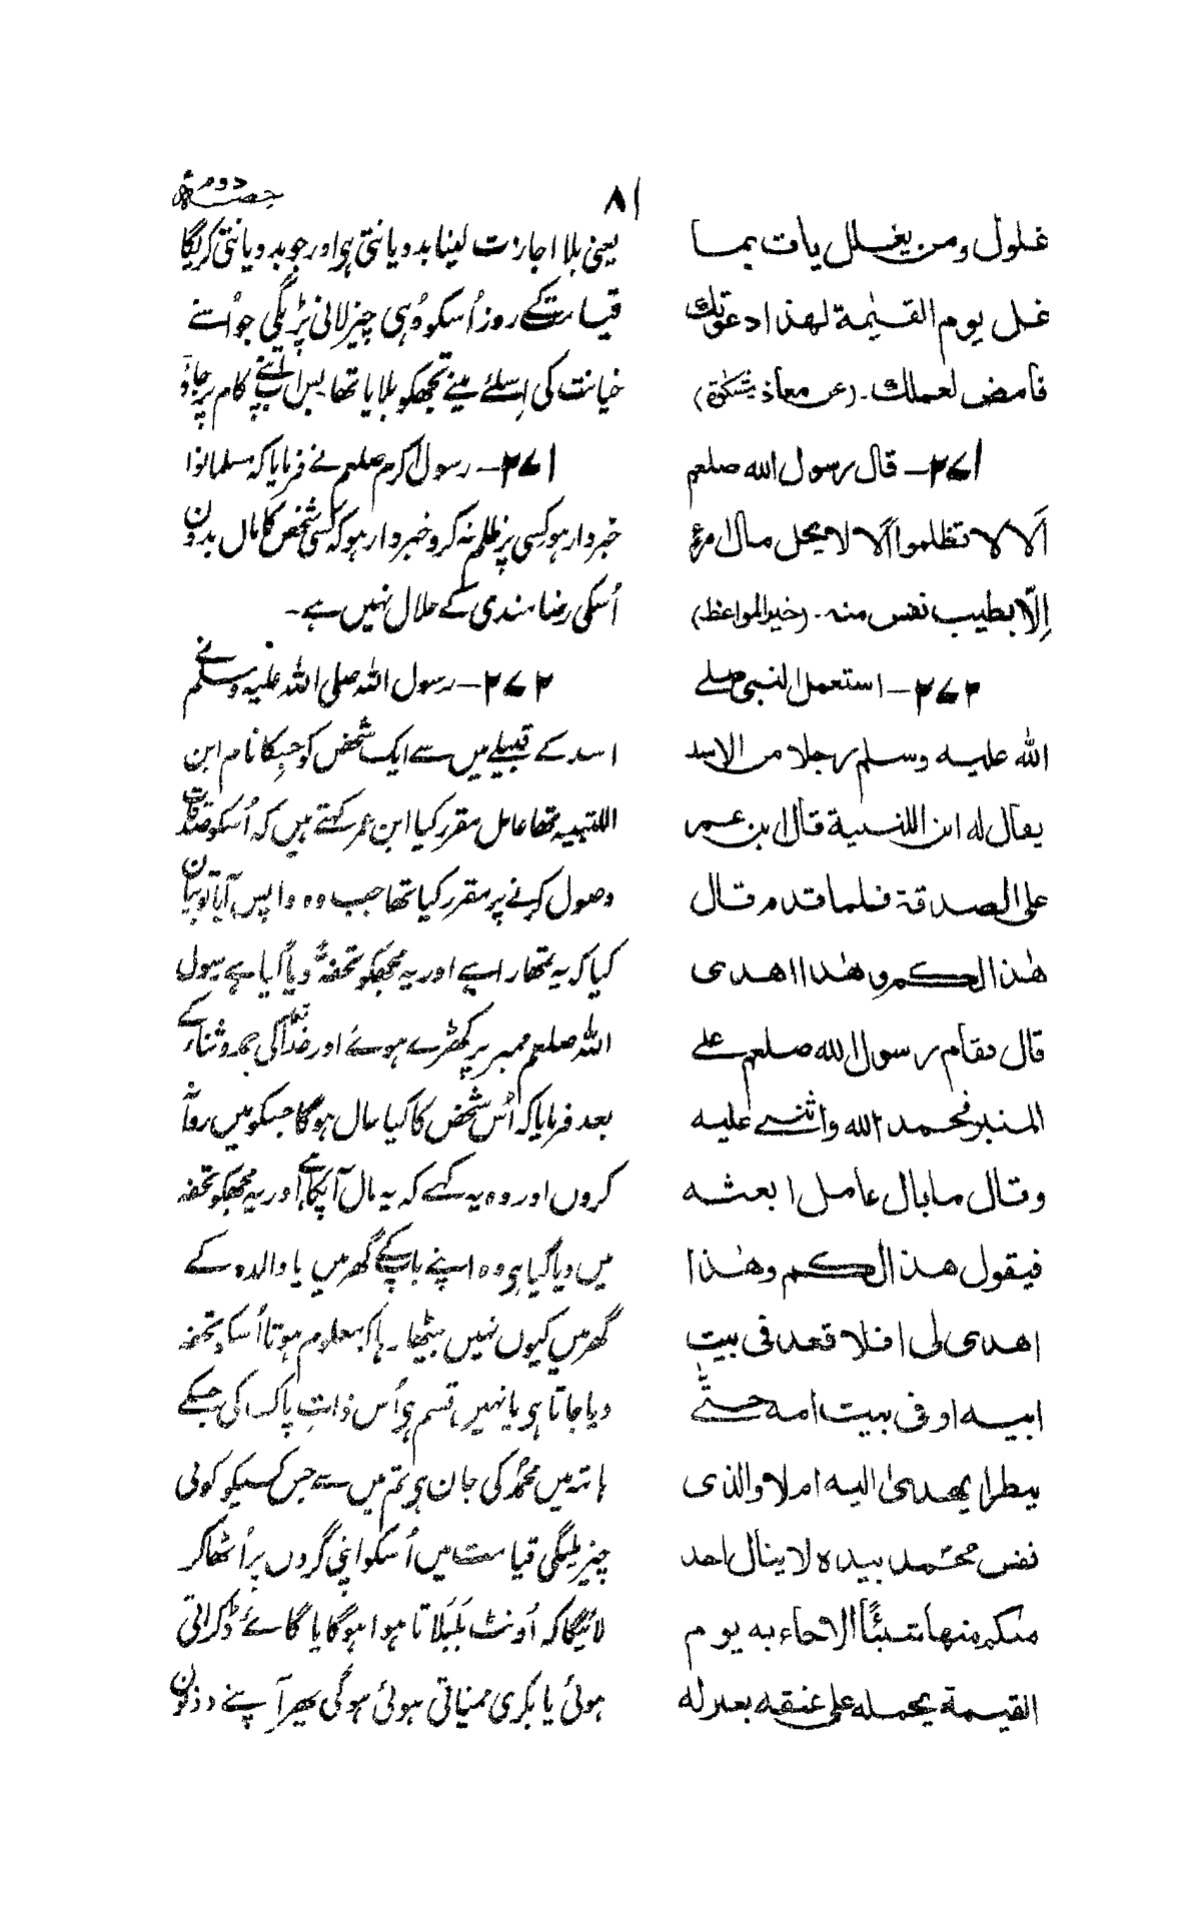 ۸۱
حصہ دوم
غلول ومن یغلل یات بما
غل یوم القیٰمة لهذا دعوتك
فامض لعملك۔ (عن معاذ مشکوٰة)
۲۷۱۔ قال رسول الله صلعم
اَلا لا تظلموا اَلا لا یحل مال امرئ
اِلّا بطیب نفس منه۔ (خیر المواعظ)
۲۷۲۔ استعمل النبی صلے
الله علیه وسلم رجلا من الاسد
یقال له ابن اللتبیة قال ابن عمر
علی الصدقة فلما قدم قال
هٰذا لکم وهٰذا اهدی
قال فقام رسول الله صلعم علے
المنبر فحمد الله واثنے علیه
وقال ما بال عامل ابعثه
فیقول هذا لکم وهٰذا
اهدی لی افلا قعد فی بیت
ابیه او فی بیت امه حتّٰے
ینظر ایهدیٰ الیه ام لا والذی
نفس محمّد بیده لا ینال احد
منکم منها شیئًا الا جاء به یوم
القیمة یحمله علی عنقه بعیر له
یعنی بلا اجازت لینا بددیانتی ہی اور جو بددیانتی کریگا
قیامت کے روز اُسکو وُہی چیز لانی پڑیگی جو اُسنے
خیانت کی اِسلئے مینے تجھکو بلایا تھا پس اپنے کام پر جاؤ
۲۷۱۔ رسول اکرم صلعم نے فرمایا کہ مسلمانوں
خبردار ہو کسی پر ظلم نہ کرو خبردار ہو کہ کسی شخص کا مال بدون
اُسکی رضامندی کے حلال نہیں ہے۔
۲۷۲۔ رسول اللہ صلی اللہ علیہ وسلم نے
اسد کے قبیلے میں سے ایک شخص کو جسکا نام ابن
اللتبیہ تھا عامل مقرر کیا ابن عمر کہتے ہیں کہ اُسکو صدقات
وصول کرنے پر مقرر کیا تھا جب وہ واپس آیا تو بیان
کیا کہ یہ تمھارا ہے اور یہ مجھکو تحفۃً دیا گیا ہے رسول
اللہ صلعم ممبر پر کھڑے ہوئے اور خدا کی حمد و ثناء کے
بعد فرمایا کہ اُس شخص کا کیا حال ہوگا جسکو میں روانہ
کروں اور وہ یہ کہے کہ یہ مال آپکا ہے اور یہ مجھکو تحفہ
میں دیا گیا ہی وہ اپنے باپ کے گھر میں یا والدہ کے
گھر میں کیوں نہیں بیٹھا۔ تاکہ معلوم ہوتا اُسکو تحفہ
دیا جاتا ہی یا نہیں قسم ہی اُس ذاتِ پاک کی جسکے
ہاتھ میں محمدؐ کی جان ہی تم میں سے جس کسیکو کوئی
چیز ملیگی قیامت میں اُسکو اپنی گردوں پر اُٹھا کر
لائیگا کہ اُونٹ بَلبَلاتا ہوا ہوگا یا گائے ڈکراتی
ہوئی یا بکری ممنیاتی ہوئی ہوگی پھر آپنے دونوں